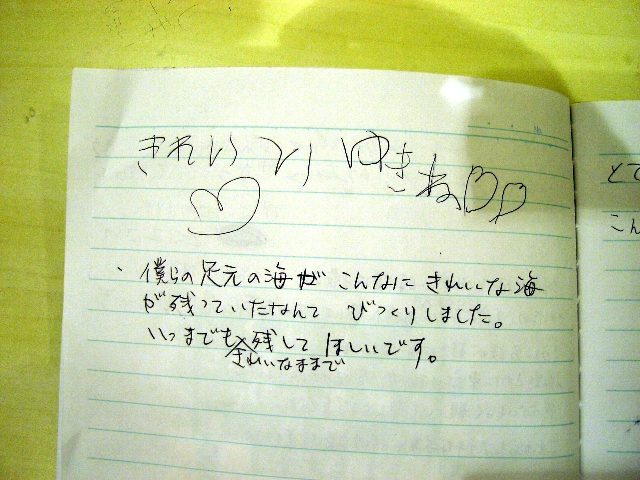 きれい
ゆきね
・僕らの足元の海が こんなに きれいな海
が残っていたなんて びっくりしました。
いつまでも残して ほしいです。
きれいなままで
とて
こん